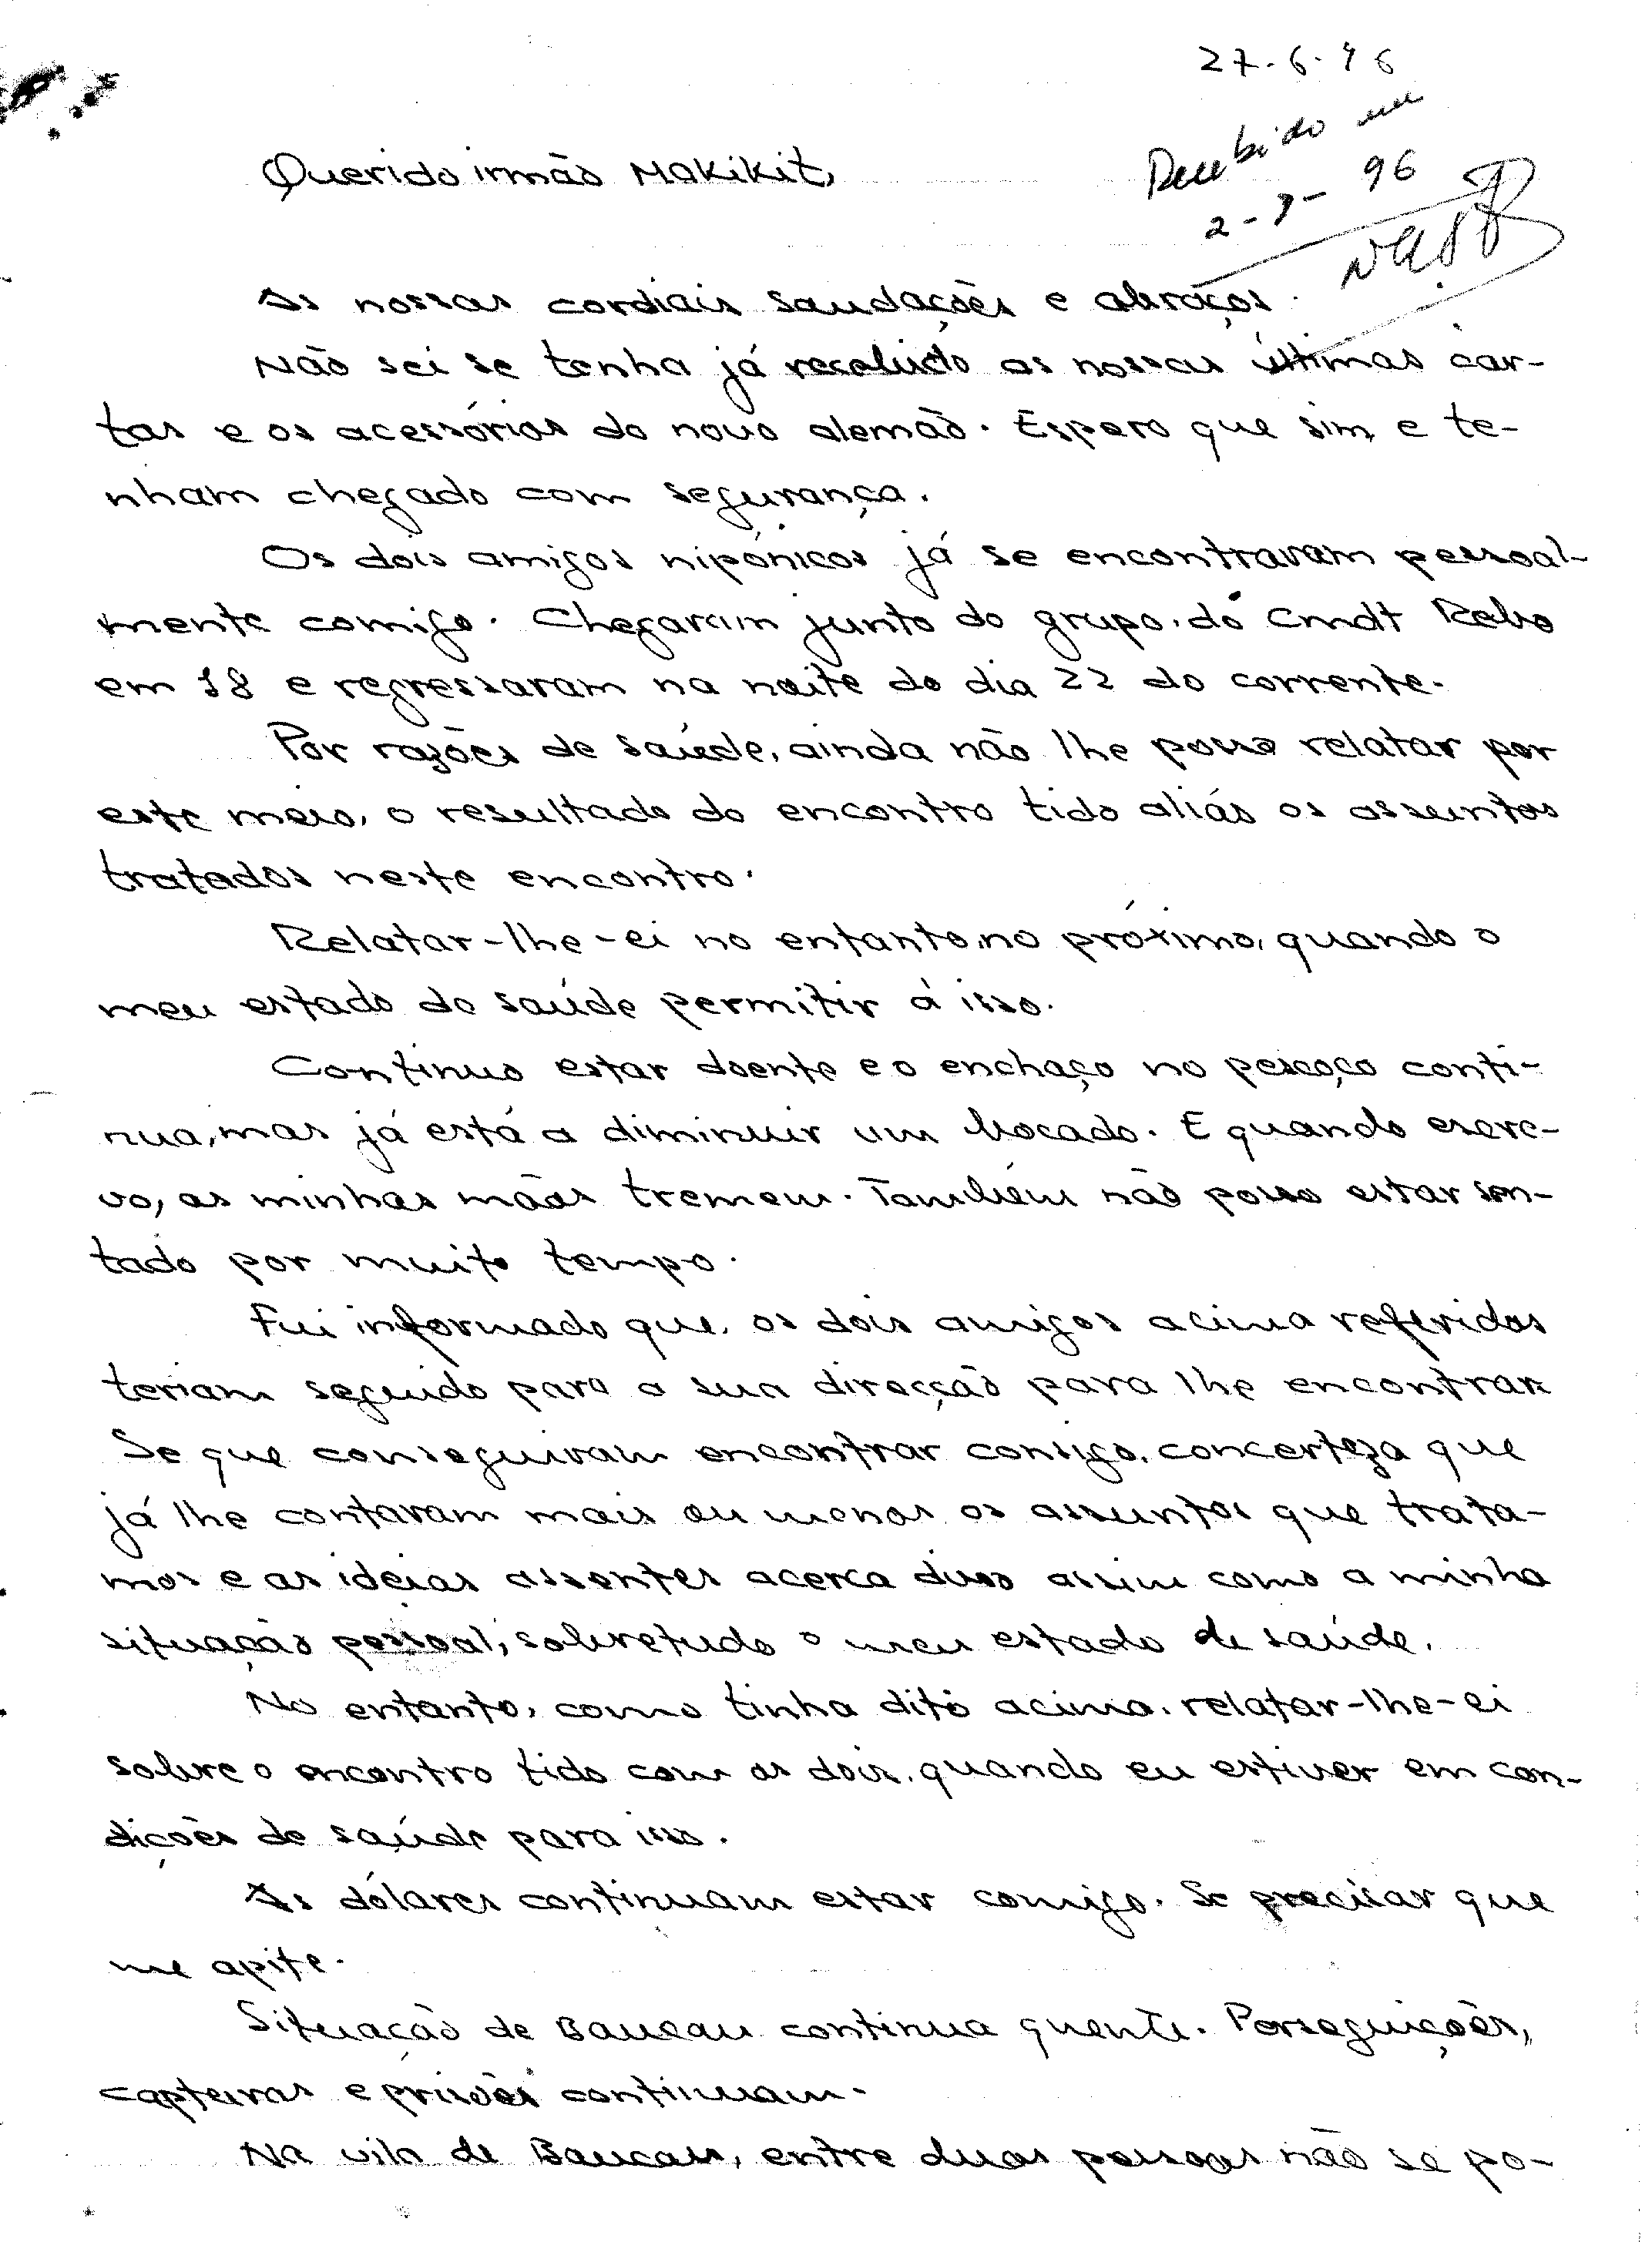 27-6-96
Recebido em
2-7-96
Querido irmão Makikit,
As nossas cordiais saudações e abraços.
Não sei se tenha já recebido as nossas últimas car-
tas e os acessórios do novo alemão. Espero que sim e te-
nham chegado com segurança.
Os dois amigos nipónicos já se encontraram pessoal-
mente comigo. Chegaram junto do grupo do Cmdt Reko
em 18 e regressaram na noite do dia 22 do corrente.
Por razões de saúde, ainda não lhe posso relatar por
este meio, o resultado do encontro tido aliás os assuntos
tratados neste encontro.
Relatar-lhe-ei no entanto, no próximo, quando o
meu estado de saúde permitir à isso.
Continuo estar doente e o enchaço no pescoço conti-
nua, mas já está a diminuir um bocado. E quando escre-
vo, as minhas mãos tremem. Também não posso estar sen-
tado por muito tempo.
Fui informado que, os dois amigos acima referidos
teriam seguido para a sua direcção para lhe encontrar.
Se que conseguiram encontrar consigo, concerteza que
já lhe contaram mais ou menos os assuntos que trata-
mos e as ideias assentes acerca disso assim como a minha
situação pessoal, sobretudo o meu estado de saúde.
No entanto, como tinha dito acima, relatar-lhe-ei
sobre o encontro tido com os dois, quando eu estiver em con-
dições de saúde para isso.
Os dólares continuam estar comigo. Se precisar que
me apite.
Situação de Baucau continua quente. Perseguições,
capturas e prisões continuam.
Na vila de Baucau, entre duas pessoas não se po-